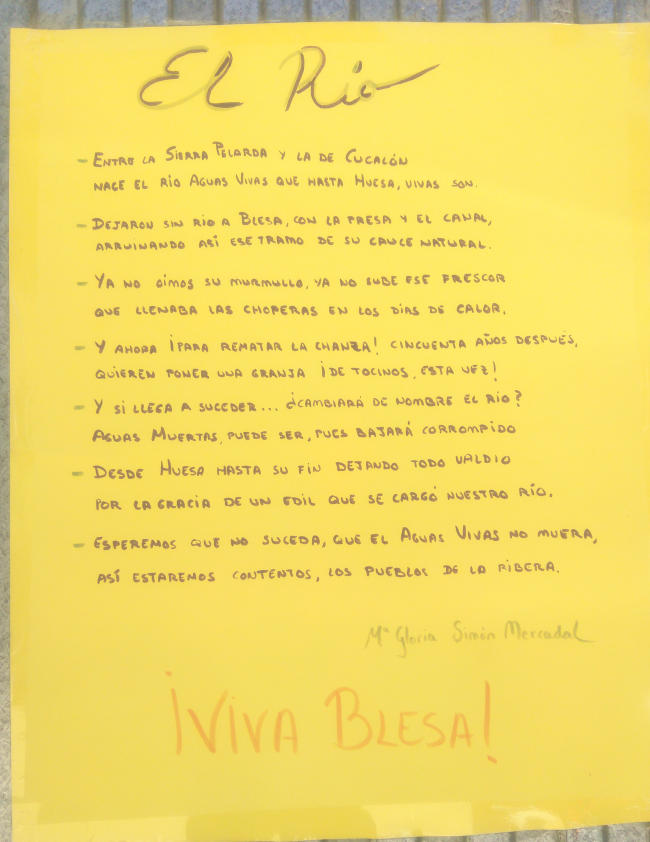 El Río
- Entre la Sierra Pelarda y la de Cucalón
nace el río Aguas Vivas que hasta Huesa, vivas son.
- Dejaron sin río a Blesa, con la presa y el canal,
arruinando así ese tramo de su cauce natural.
- Ya no oímos su murmullo, ya no sube ese frescor
que llenaba las choperas en los días de calor.
- Y ahora ¡para rematar la chanza! cincuenta años después,
quieren poner una granja ¡de tocinos, esta vez!
- Y si llega a suceder... ¿cambiará de nombre el río?
Aguas Muertas, puede ser, pues bajará corrompido
- Desde Huesa hasta su fin dejando todo valdío
por la gracia de un edil que se cargó nuestro río.
- Esperemos que no suceda, que el Aguas Vivas no muera,
así estaremos contentos, los pueblos de la ribera.
Mª Gloria Simón Mercadal
¡VIVA BLESA!